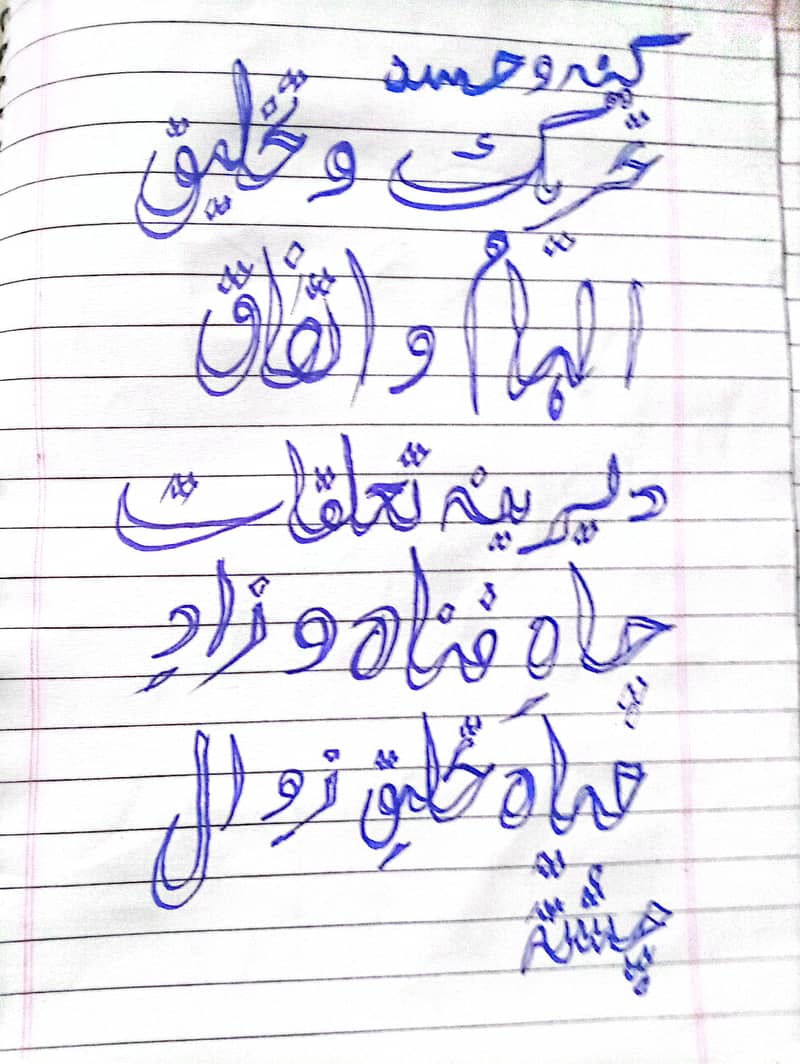 کینہ و حسد
تحریک و تخلیق
التہاٰ و اتفاق
دلیرینہ تعلقات
چاہ فناہ و زادِ
چاہ تخلیقِ زوال
چشتہ